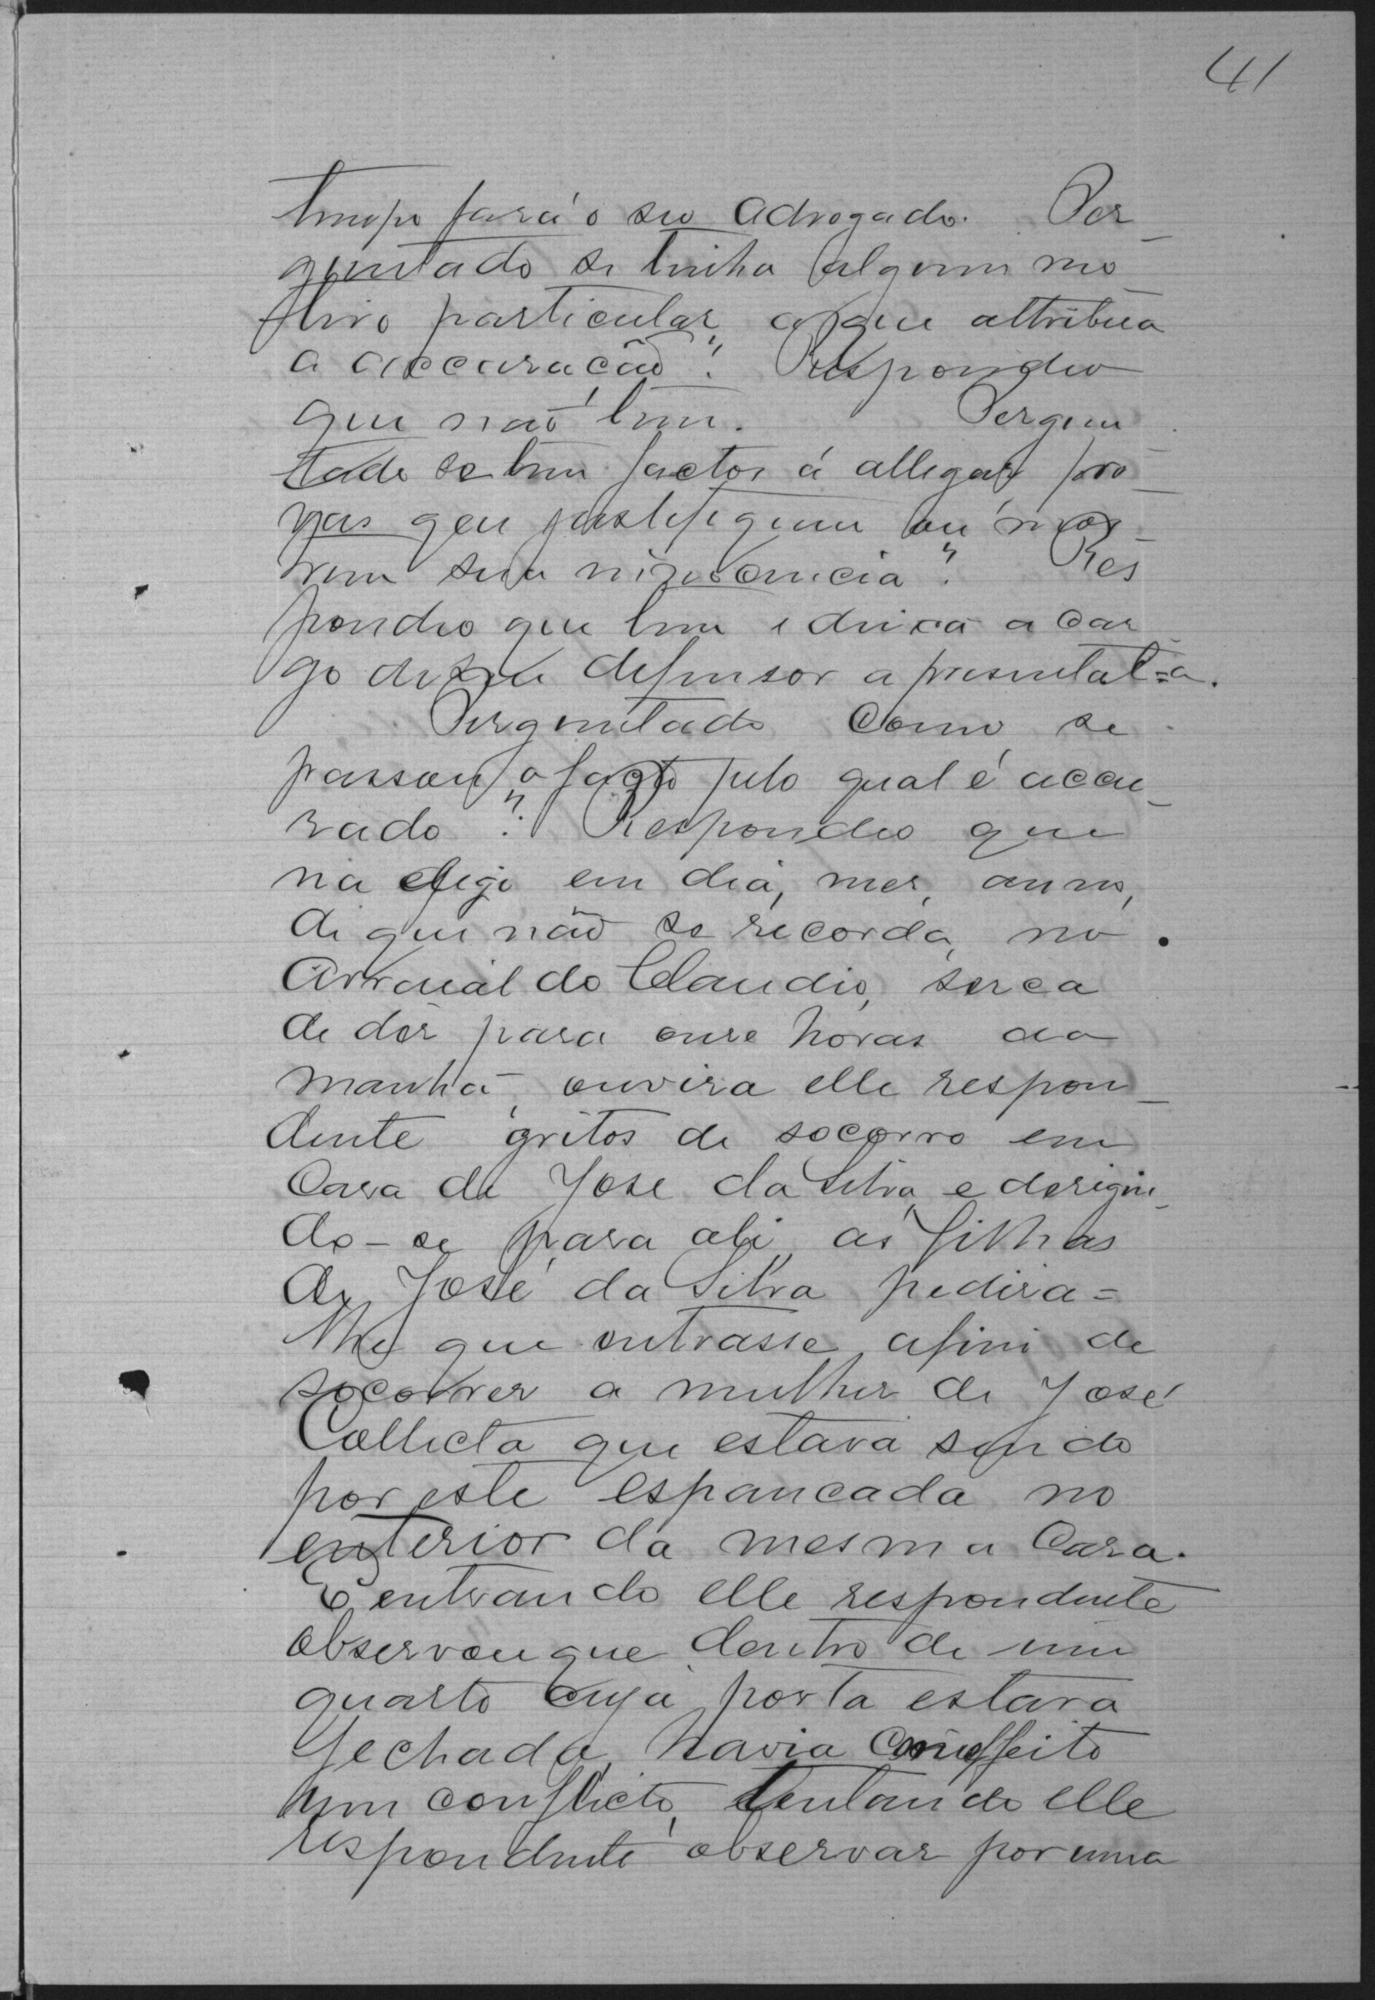 41
tempo fará o seu Advogado. Per_
guntado se tinha algum mo_
tivo particular a que attribua
a accuração? Respondeo
que não tem. Pergun
tado se tem factos á allegar pro_
vas que justifiquem ou mos_
trem sua innocencia? Res
pondeo que tem e deixa a car_
go de seu defensor apresental=a.
Perguntado como se
passou o facto pelo qual é accu_
rado? Respondeo que
na em dia, mer, anno,
de que não se recorda, no
Arraial do Claudio, serca
de dér para onre horas da
manhã, ouvira elle respon_
dente gritos de socorro em
Cara de José da Silva, e derigin_
do-se para ali, as filhas
de José da Silva pedira=
lhe que entrasse, afim de
socorrer a mulher de José
Collecta que estava sendo
por este espancada no
enterior da mesma Cara.
E entrando elle respondente
observou que dentro de um
quarto cuja porta estava
fechada, havia com effeito
um conflicto, tentando elle
respondente observar por uma